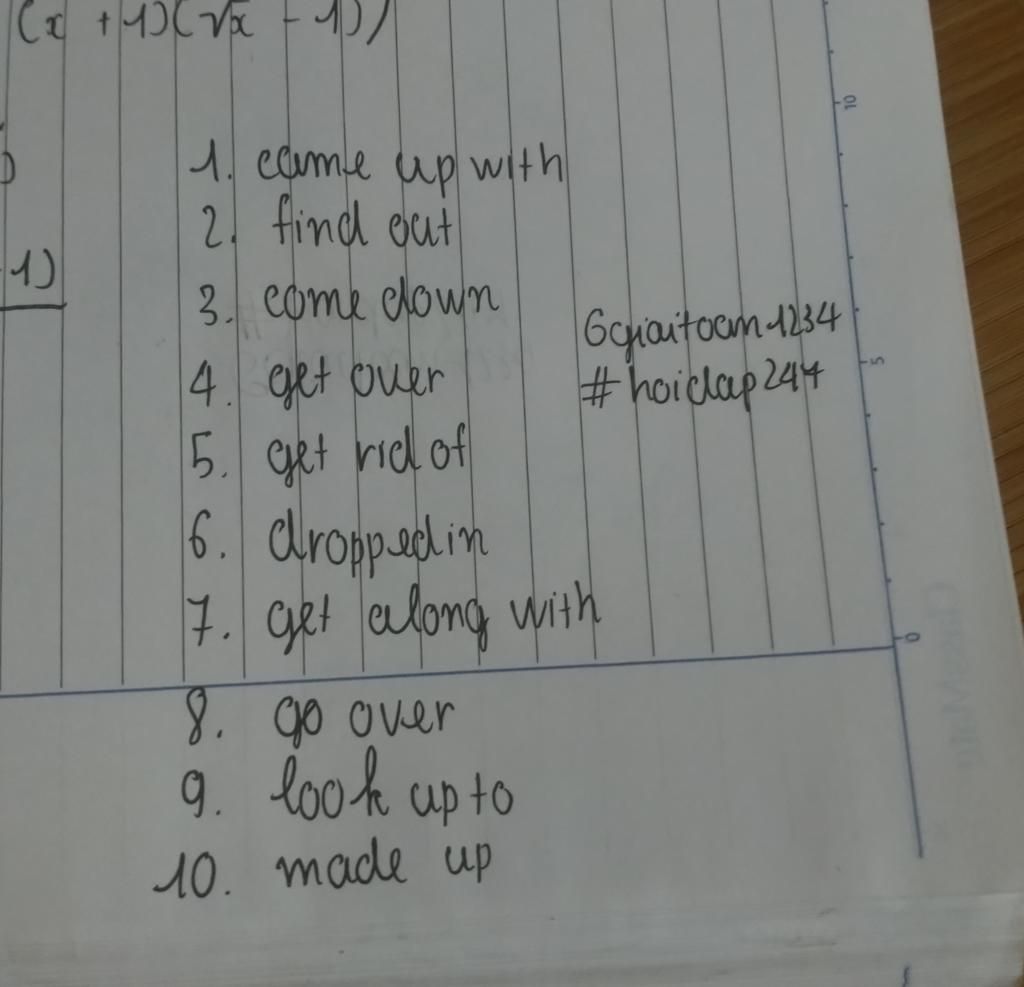 (x + 1)(√x - 1))
)
1. came up with
2. find out
1)
3. come down
6giaitoan1234
4. get over
#hoidap247
5. get rid of
6. dropped in
7. get along with
8. go over
9. look up to
10. made up
10
5
0